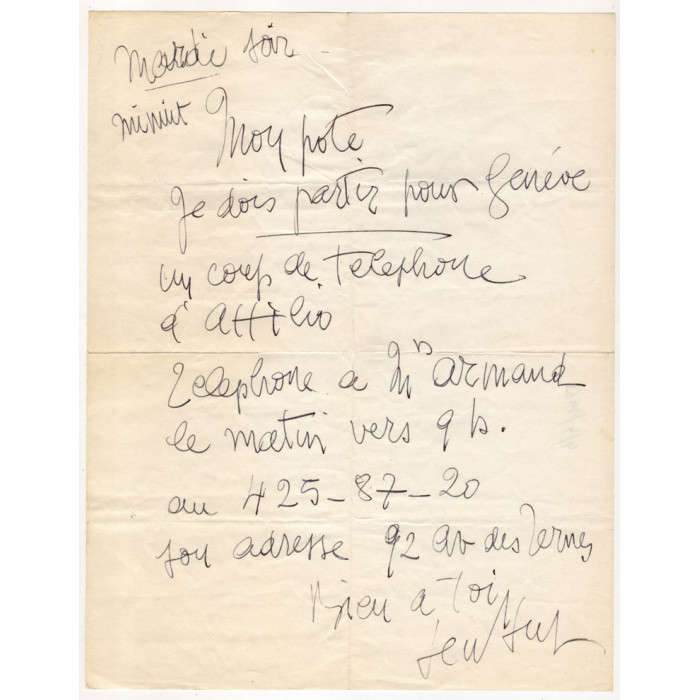 mardi soir
minuit
Mon pote
Je dois partir pour Genève
un coup de telephone
d'Attilio
Telephone a Mr armand
le matin vers 9 h.
au 425-87-20
son adresse 92 av des Ternes
Bien a toi